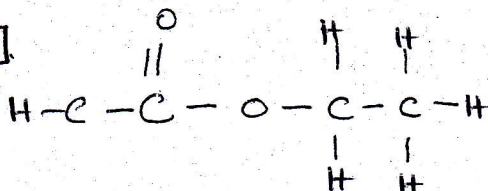 ].
O
||
H H
| |
H-C-C-O-C-C-H
| |
H H